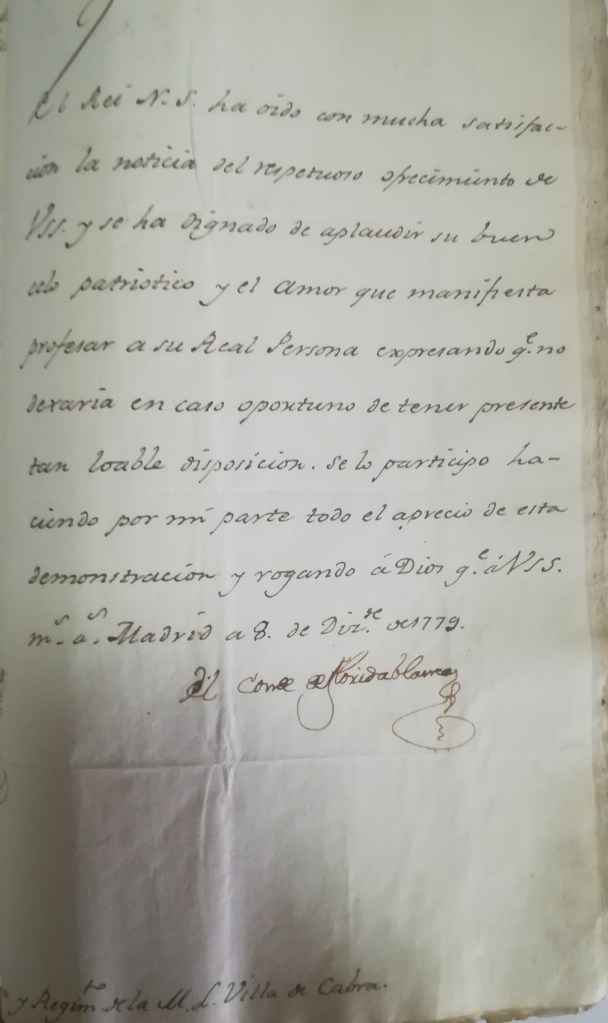 El Rei N. S. ha oido con mucha satisfac-
cion la noticia del respetuoso ofrecimiento de
VSS. y se ha dignado de aplaudir su buen
celo patriotico y el amor que manifiesta
profesar a su Real Persona expresando q.e no
dexaria en caso oportuno de tener presente
tan loable disposicion. Se lo participo ha-
ciendo por mi parte todo el aprecio de esta
demonstracion y rogando á Dios g.e á VSS.
m.s a.s Madrid a 8. de Diz.re de 1779.
El Conde de Floridablanca
y Regim.to de la M. L. Villa de Cabra.